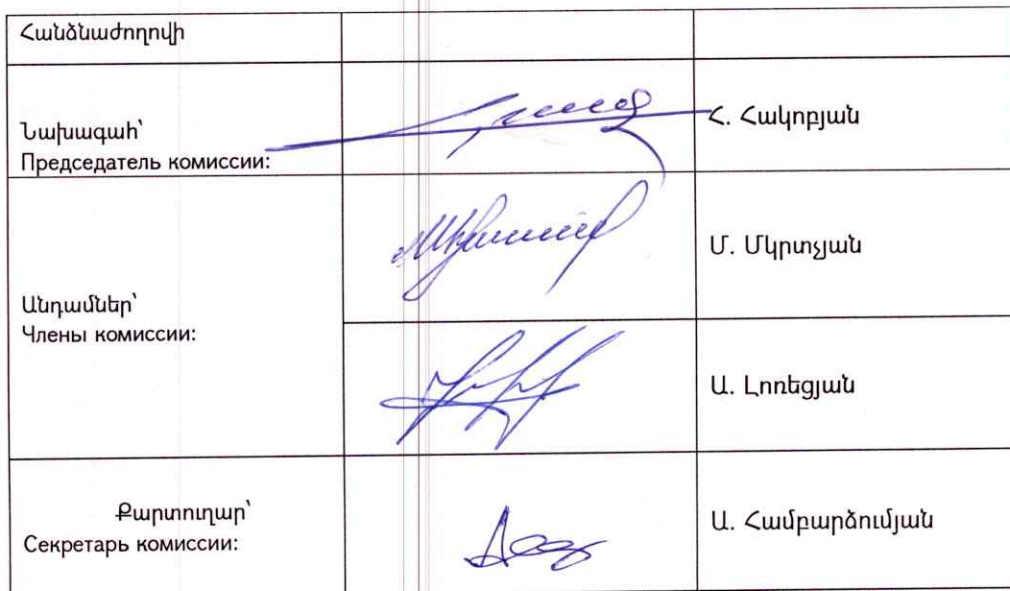 Հանձնաժողովի
Նախագահ՝
Председатель комиссии:
Հ. Հակոբյան
Մ. Մկրտչյան
Անդամներ՝
Члены комиссии:
Ա. Լոռեցյան
Քարտուղար՝
Секретарь комиссии:
Ա. Համբարձումյան